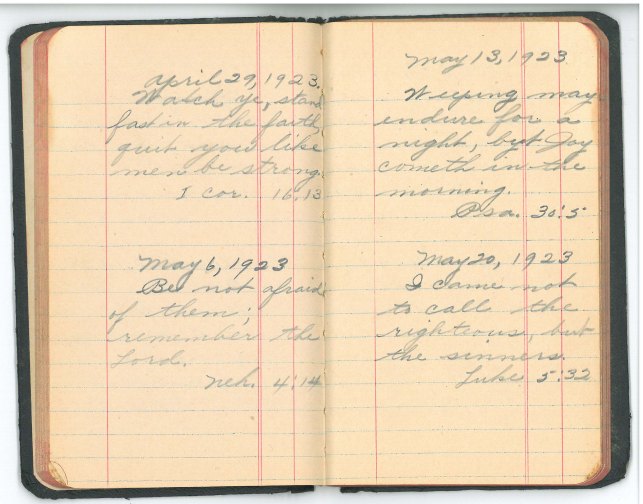 April 29, 1923.
Watch ye, stand
fast in the faith,
quit you like
men be strong.
I Cor. 16:13
May 6, 1923
Be not afraid
of them;
remember the
Lord.
Neh. 4:14
May 13, 1923
Weeping may
endure for a
night, but Joy
cometh in the
morning.
Psa. 30:5
May 20, 1923
I came not
to call the
righteous, but
the sinners.
Luke 5:32